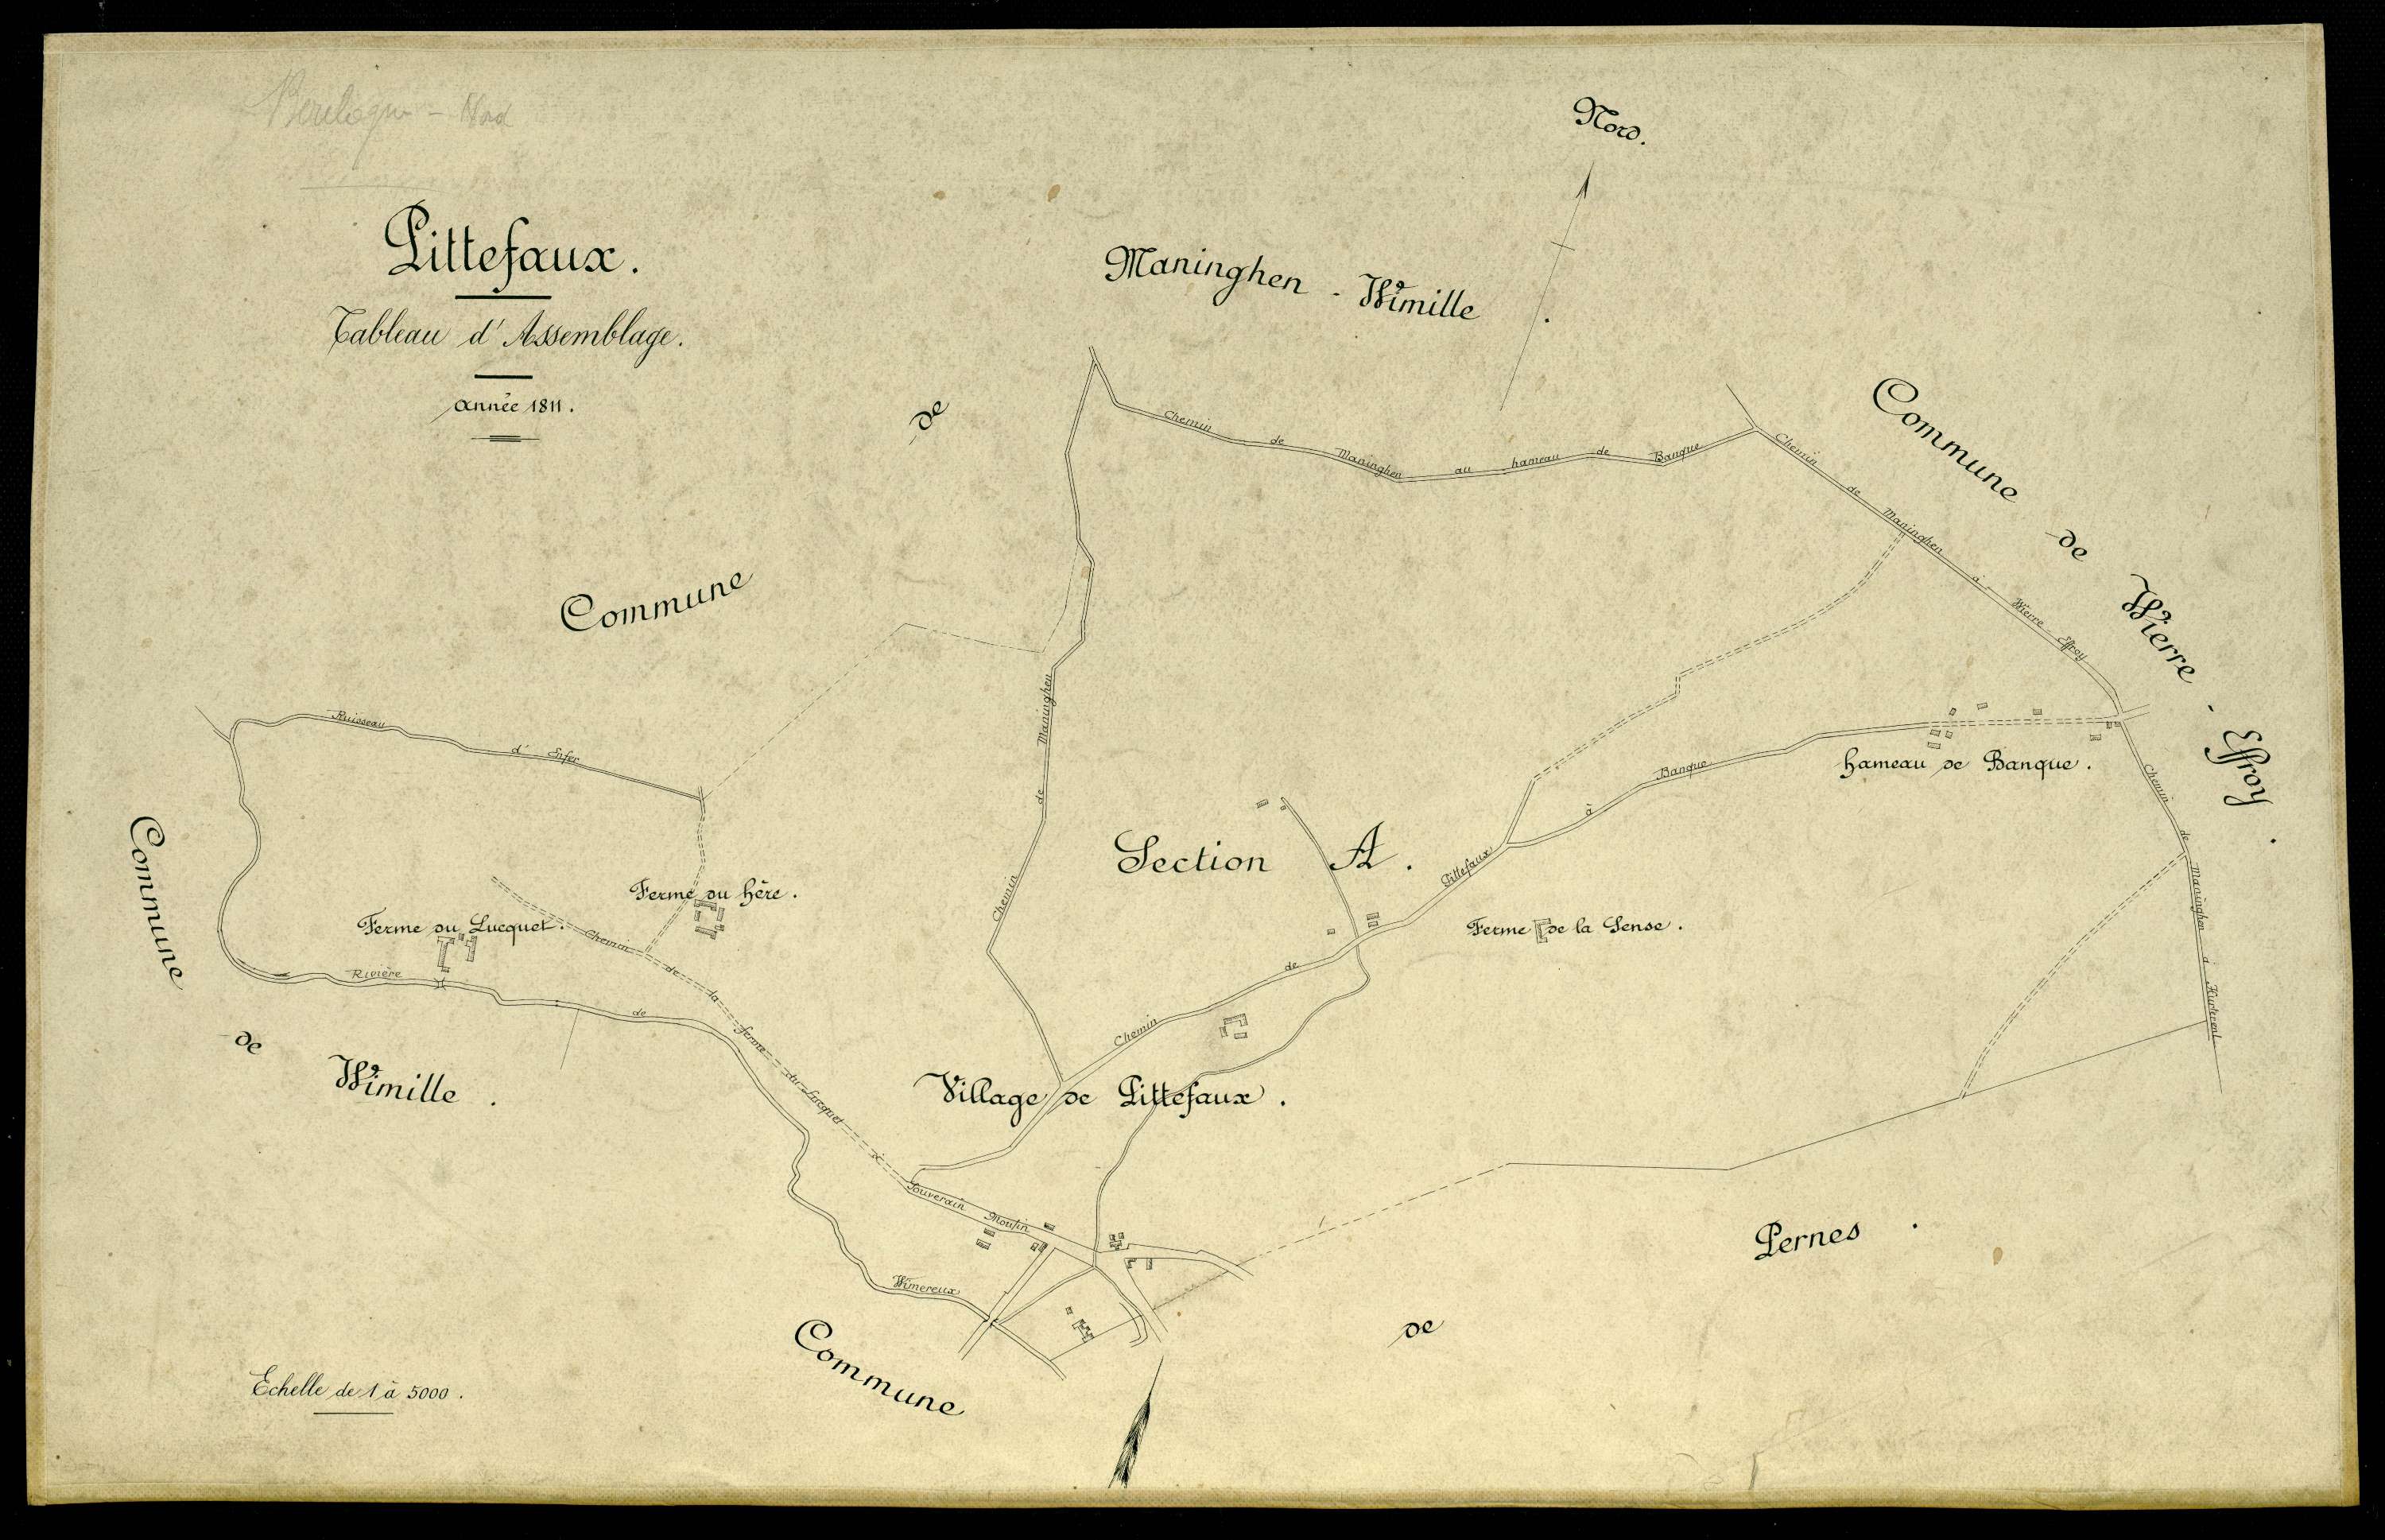 Boulogne - Nord
Pittefaux.
Tableau d'Assemblage.
Année 1811.
Nord.
Commune de Maninghen - Wimille .
Commune de Wierre - Effroy .
Chemin de Maninghen au hameau de Banque
Chemin de Maninghen à Wierre Effroy
Ruisseau d' Enfer
Chemin de Maninghen
hameau de Banque .
Section A .
Chemin de Pittefaux à Banque
Chemin de Maninghen à Huplevent
Ferme du hère .
Ferme du Lucquet .
Ferme de la Sense .
Rivière de Wimereux
Chemin de la ferme du Lucquet à Souverain Moulin
Commune de Wimille .
Village de Pittefaux .
Commune de Pernes .
Echelle de 1 à 5000 .